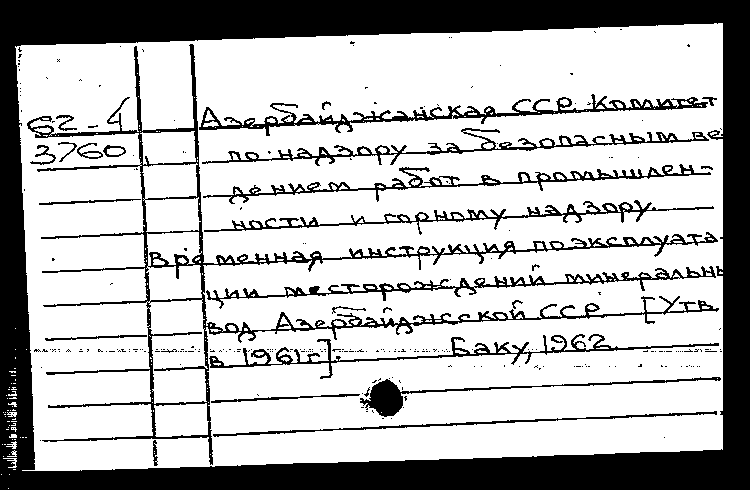 62-4
3760
Азербайджанская ССР. Комитет
по надзору за безопасным ве
дением работ в промышлен-
ности и горному надзору.
Временная инструкция по эксплуата-
ции месторождений минеральн
вод Азербайджсской ССР. [Утв.
в 1961 г.]. Баку, 1962.